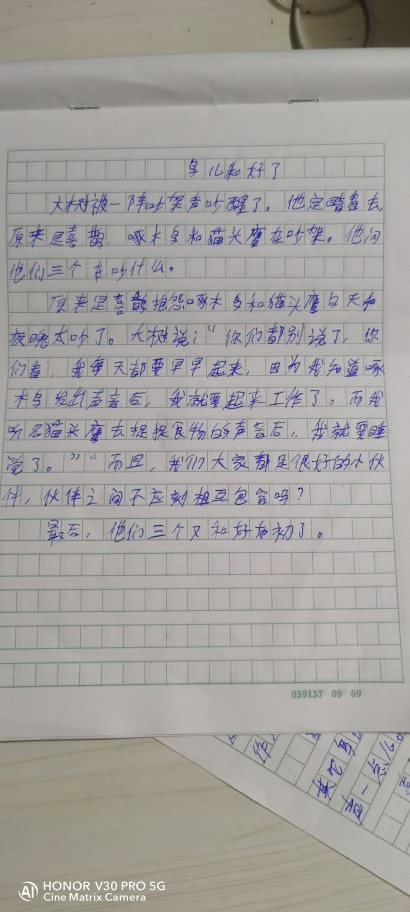 鸟儿和好了
大树被一阵吵架声吵醒了。他定睛看去
原来是喜鹊 啄木鸟和猫头鹰在吵架。他问
他们三个在吵什么。
原来是喜鹊抱怨啄木鸟和猫头鹰白天和
夜晚太吵了。大树说:“你们都别说了,你
们看,我每天都要早早起来,因为我知道啄
木鸟发出声音后,我就要起来工作了。而我
听见猫头鹰去捉捉食物的声音后,我就要睡
觉了。”“而且,我们大家都是很好的小伙
伴,伙伴之间不应该相互包容吗?
最后,他们三个又和好如初了。
039137 09 09
HONOR V30 PRO 5G
Cine Matrix Camera